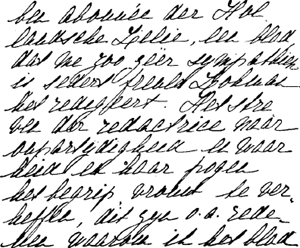 ben abonnée der Hol
landsche Lelie, een blad
dat me zoo zéér sympathiek
is sedert freule Lohman
het redigeert. Het stre
ven der redactrice naar
onpartijdigheid en waar
heid en haar pogen
het begrip vrouw te ver-
heffen, dit zyn o.a. rede-
nen waarom ik het blad